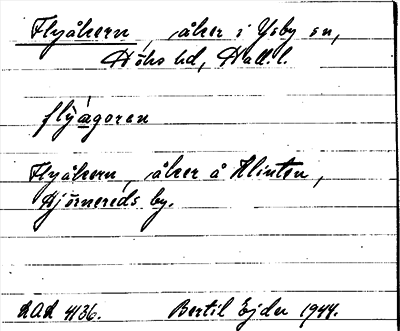 Flyåkern, åker i Ysby sn,
Höks hd, Hall.
flyágoren
Flyåkern, åker å Klinten,
Hjörnereds by.
LAL 4136. Bertil Ejder 1944.